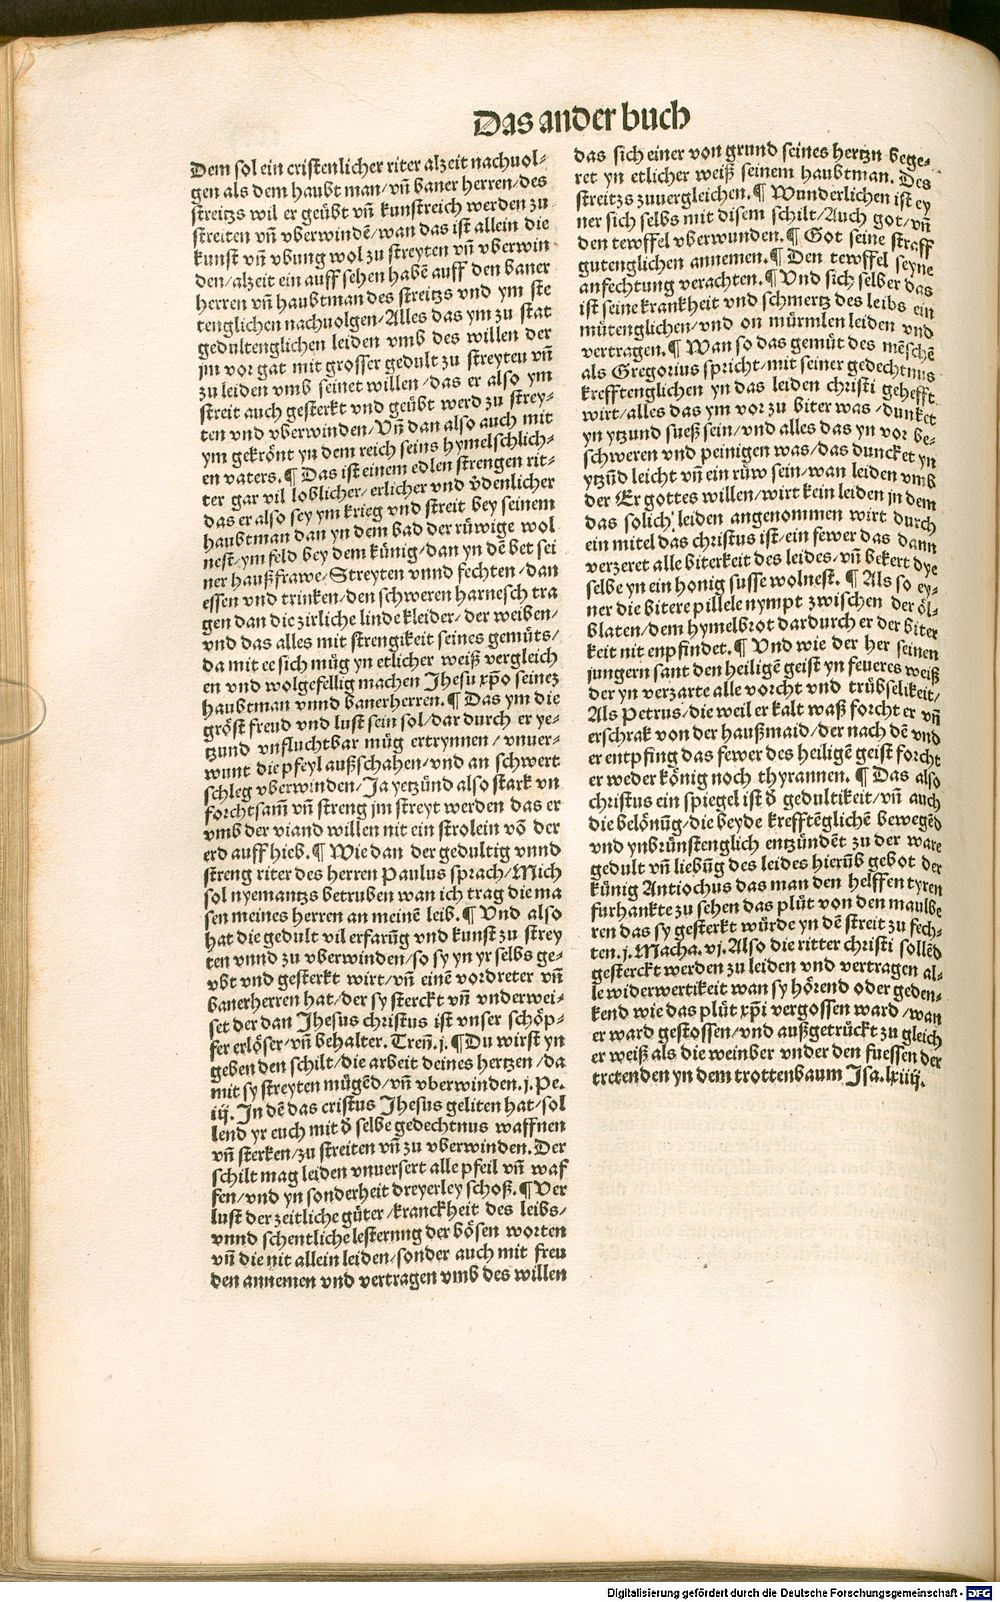 Das ander buch
Dem sol ein cristenlicher riter alzeit nachuol⸗
gen als dem haubt man/vn̄ baner herren/des
streitzs wil er geübt vn̄ kunstreich werden zu
streiten vn̄ vberwindē/wan das ist allein die
kunst vn̄ vbung wol zu streyten vn̄ vberwin
den/alzeit ein auff sehen habē auff den baner
herren vn̄ haubtman des streitzs vnd ym ste
tenglichen nachuolgen/Alles das ym zu stat
gedultenglichen leiden vmb des willen der
jm vor gat mit grosser gedult zu streyteu vn̄
zu leiden vmb seinet willen/das er also ym
streit auch gesterkt vnd geübt werd zu strey⸗
ten vnd vberwinden/Vn̄ dan also auch mit
ym gekrönt yn dem reich seins hymelschlich⸗
en vaters.¶ Das ist einem edlen strengen rit⸗
ter gar vil loblicher/erlicher vnd v̄denlicher
das er also sey ym krieg vnd streit bey seinem
haubtman dan yn dem bad der rüwige wol
nest/ym feld bey dem künig/dan yn dē bet sei
ner haußfrawe/Streyten vnnd fechten/dan
essen vnd trinken/den schweren harnesch tra
gen dan die zirliche linde kleider/der weiben/
vnd das alles mit strengikeit seines gemüts/
da mit ee sich müg yn etlicher weiß vergleich
en vnd wolgefellig machen Jhesu xp̄o seinez
haubtman vnnd banerherren.¶ Das ym die
gröst freud vnd lust sein sol/dar durch er ye⸗
tzund vnfluchtbar müg ertrynnen/vnuer⸗
wunt die pfeyl außschahen/vnd an schwert
schleg vberwinden/Ja yetzünd also stark vn
forchtsam̄ vn̄ streng jm streyt werden das er
vmb der viand willen nit ein strolein vō der
erd auff hieb.¶ Wie dan der gedultig vnnd
streng riter des herren Paulus sprach/Mich
sol nyemantzs betruben wan ich trag die ma
sen meines herren an meinē leib.¶ Vnd also
hat die gedult vil erfarūg vnd kunst zu strey
ten vnnd zu vberwinden/so sy yn yr selbs ge⸗
vbt vnd gesterkt wirt/vn̄ einē vordreter vn̄
banerherren hat/der sy sterckt vn̄ vnderwei⸗
set der dan Jhesus christus ist vnser schöp⸗
fer erlöser/vn̄ behalter. Tren̄.j.¶ Du wirst yn
geben den schilt/die arbeit deines hertzen/da
mit sy streyten mügēd/vn̄ vberwinden.j.Pe.
iij. In dē das cristus Jhesus geliten hat/sol
lend yr euch mit d̄ selbe gedechtnus waffnen
vn̄ sterken/zu streiten vn̄ zu vberwinden. Der
schilt mag leiden vnuersert alle pfeil vn̄ waf
fen/vnd yn sonderheit dreyerley schoß.¶ Ver
lust der zeitliche güter/kranckheit des leibs/
vnnd schentliche lesternng der bösen worten
vn̄ die nit allein leiden/sonder auch mit freu
den annemen vnd vertragen vmb des willen
das sich einer von grund seines hertzn bege⸗
ret yn etlicher weiß seinem haubtman. Des
streitzs zuuergleichen.¶ Wunderlichen ist ey
ner sich selbs mit disem schilt/Auch got/vn̄
den tewffel vberwunden.¶ Got seine straff
gutenglichen annemen.¶ Den tewffel seyne
anfechtung verachten.¶ Vnd sich selber das
ist seine krankheit vnd schmertz des leibs ein
mütenglichen/vnd on mürmlen leiden vnd
vertragen.¶ Wan so das gemüt des mēschē
als Gregorius spricht/mit seiner gedechtnus
krefftenglichen yn das leiden christi gehefft
wirt/alles das ym vor zu biter was/dunket
yn ytzund sueß sein/vnd alles das yn vor be⸗
schweren vnd peinigen was/das duncket yn
ytzūd leicht vn̄ ein rüw sein/wan leiden vmb
der Er gottes willen/wirt kein leiden jn dem
das solich' leiden angenommen wirt durch
ein mitel das christus ist/ein fewer das dann
verzeret alle biterkeit des leides/vn̄ bekert dye
selbe yn ein honig susse wolnest. ¶ Als so ey⸗
ner die bitere pillele nympt zwischen der öl⸗
blaten/dem hymelbrot dardurch er der biter
keit nit enpfindet.¶ Vnd wie der her seinen
jungern sant den heiligē geist yn feueres weiß
der yn verzarte alle vorcht vnd trübselikeit/
Als Petrus/die weil er kalt waß forcht er vn̄
erschrak von der haußmaid/der nach dē vnd
er entpfing das fewer des heiligē geist forcht
er weder könig noch thyrannen. ¶ Das also
christus ein spiegel ist d̄ gedultikeit/vn̄ auch
die belönūg/die beyde krefftēglichē bewegēd
vnd ynbrünstenglich entzündēt zu der ware
gedult vn̄ liebūg des leides hierūb gebot der
künig Antiochus das man den helffentyren
furhankte zu sehen das plüt von den maulbe
ren das sy gesterkt würde yn dē streit zu fech⸗
ten.j.Macha.vj.Also die ritter christi sollēd
gesterckt werden zu leiden vnd vertragen al⸗
le widerwertikeit wan sy hörend oder geden⸗
kend wie das plüt xp̄i vergossen ward/wan
er ward gestossen/vnd außgetrückt zu gleich
er weiß als die weinber vnder den fuessen der
tretenden yn dem trottenbaum Isa.lxiiij.
Digitalisierung gefördert durch die Deutsche Forschungsgemeinschaft - DFG